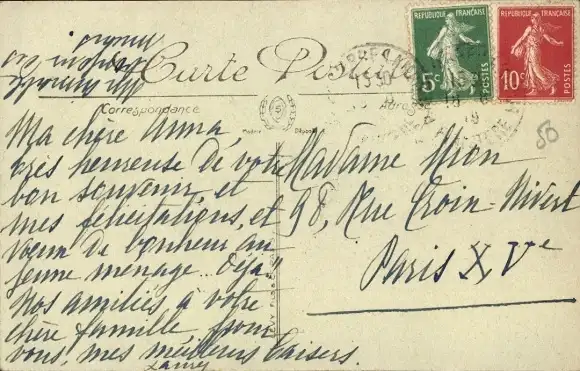 Carte Postale
RÉPUBLIQUE FRANÇAISE
5c
POSTES
RÉPUBLIQUE FRANÇAISE
10c
POSTES
Correspondance
Ma chère Anna,
très heureuse de votre
bon souvenir, et
mes félicitations, et
vœux de bonheur au
jeune ménage.. déjà."
Nos amitiés à votre
chère famille pour
vous, mes meilleurs baisers.
Madame Mion
98, Rue Croix-Nivert
Paris XVe
50